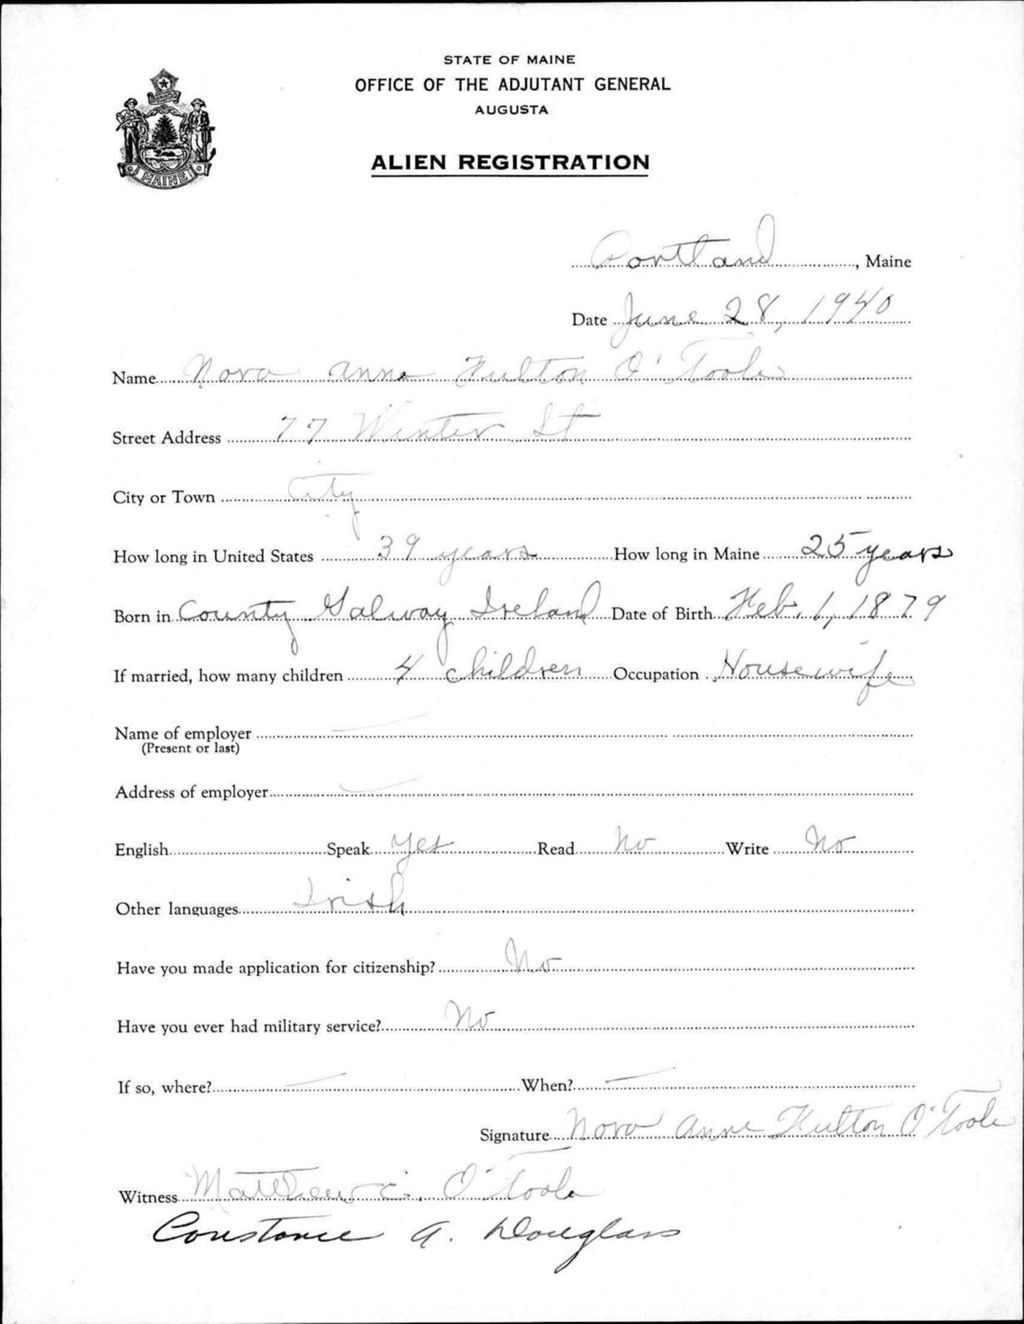 STATE OF MAINE
OFFICE OF THE ADJUTANT GENERAL
AUGUSTA
ALIEN REGISTRATION
MAINE
Portland, Maine
Date June 28, 1940
Name Nora Anne Fulton O'Toole
Street Address 77 Winter St
City or Town City
How long in United States 39 years How long in Maine 25 years
Born in County Galway Ireland Date of Birth Feb. 1, 1879
If married, how many children 4 children Occupation Housewife
Name of employer —
(Present or last)
Address of employer —
English Speak Yes Read No Write No
Other languages Irish
Have you made application for citizenship? No
Have you ever had military service? No
If so, where? — When? —
Signature Nora Anne Fulton O'Toole
Witness Matthew C. O'Toole
Constance A. Douglass